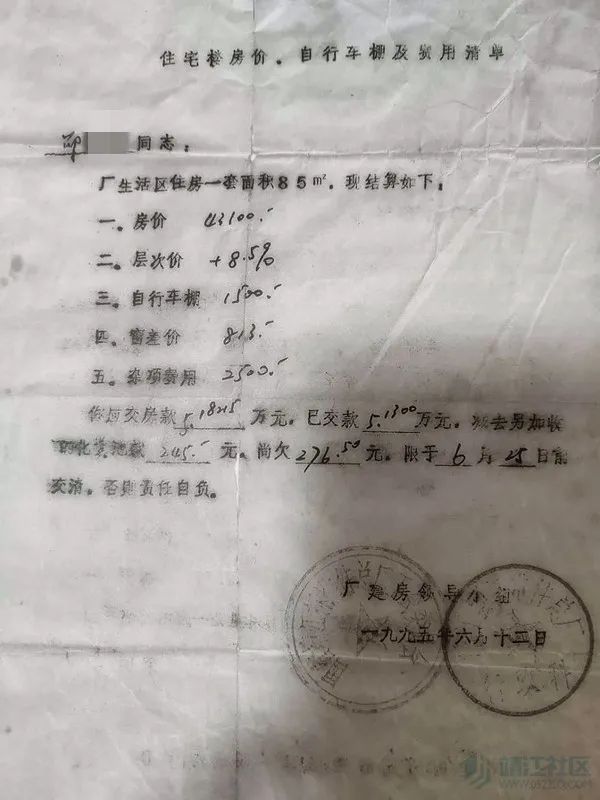 住宅楼房价。自行车棚及费用清单
邱 同志：
厂生活区住房一套面积85m²。现结算如下。
一。房价 43100.-
二。层次价 +8.5%
三。自行车棚 1500.-
四。窗差价 813.-
五。杂项费用 2500.-
你应交房款5.18215万元。已交款5.1300万元。减去另加收
的化粪池款245.-元。尚欠276.50元。限于6月25日前
交清。否则责任自负。
厂建房领导小组
一九九五年六月十二日
靖江社区